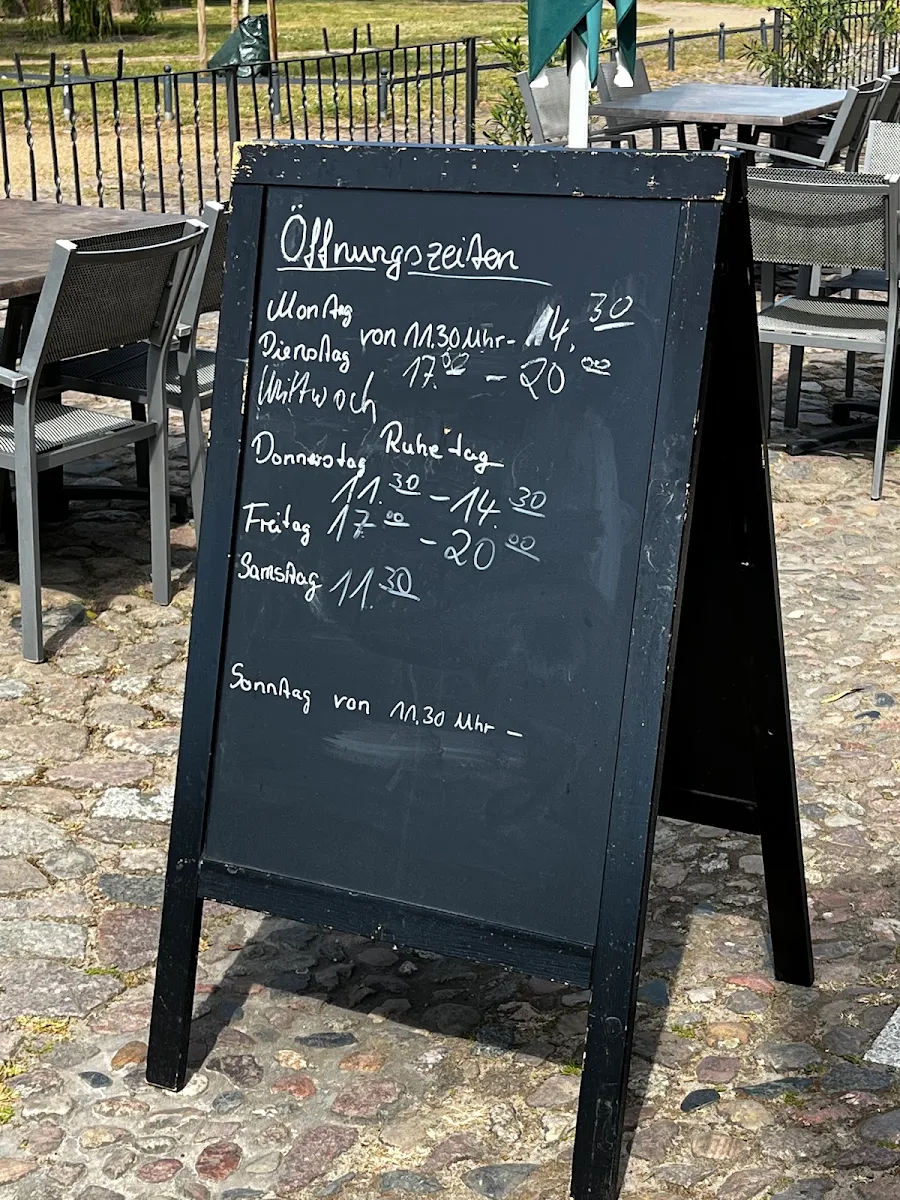 Öffnungszeiten
Montag
von 11.30 Uhr - 14.30
Dienstag
17.00 - 20.00
Mittwoch
Ruhetag
Donnerstag
11.30 - 14.30
Freitag 17.00 - 20.00
Samstag 11.30
Sonntag von 11.30 Uhr -